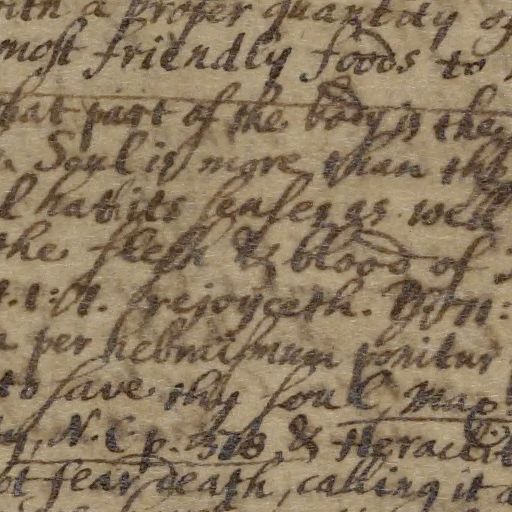 with a proper quantity of
most friendly foods to
that part of the body is the
Soul is more than the
hath its senses as well
the flesh & blood of
rejoyceth.
per hebraismum ponitur
to save thy soul, Map
N. C p. 378, & Heraclit
not fear death, calling it a